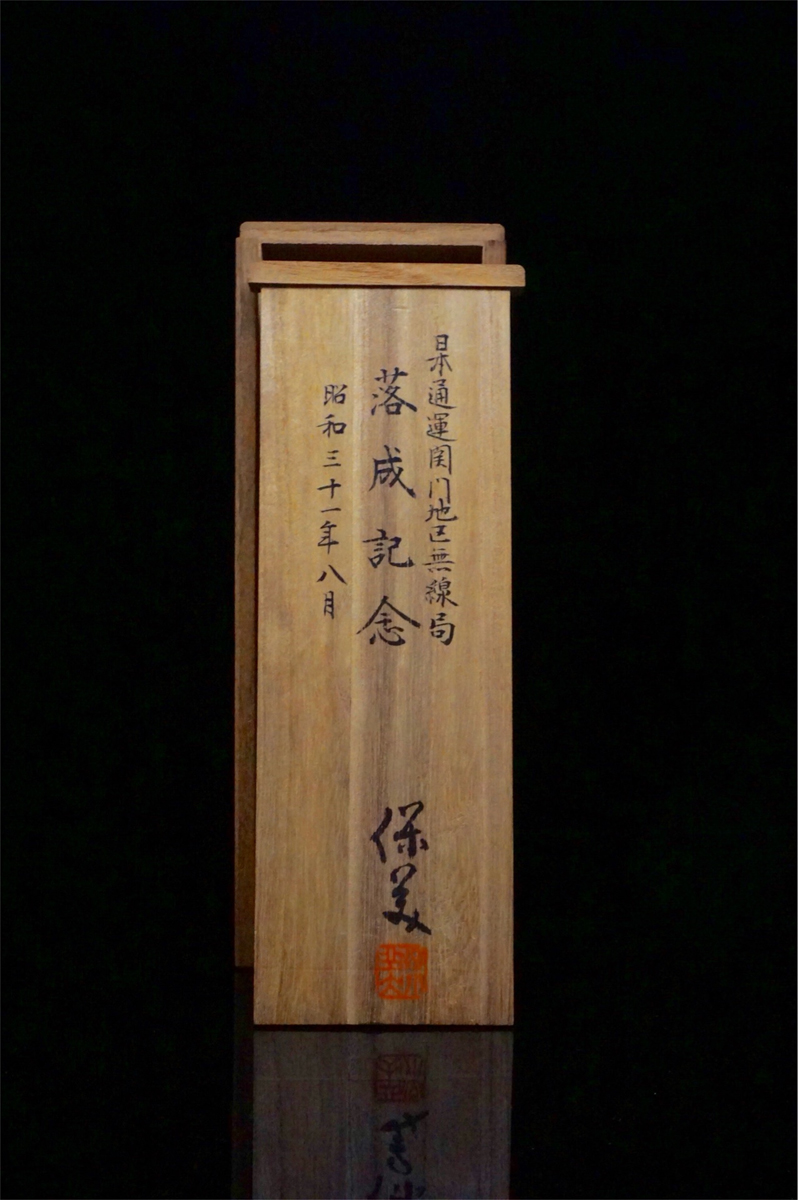 日本通運関門地区無線局
落成記念
昭和三十一年八月
保美